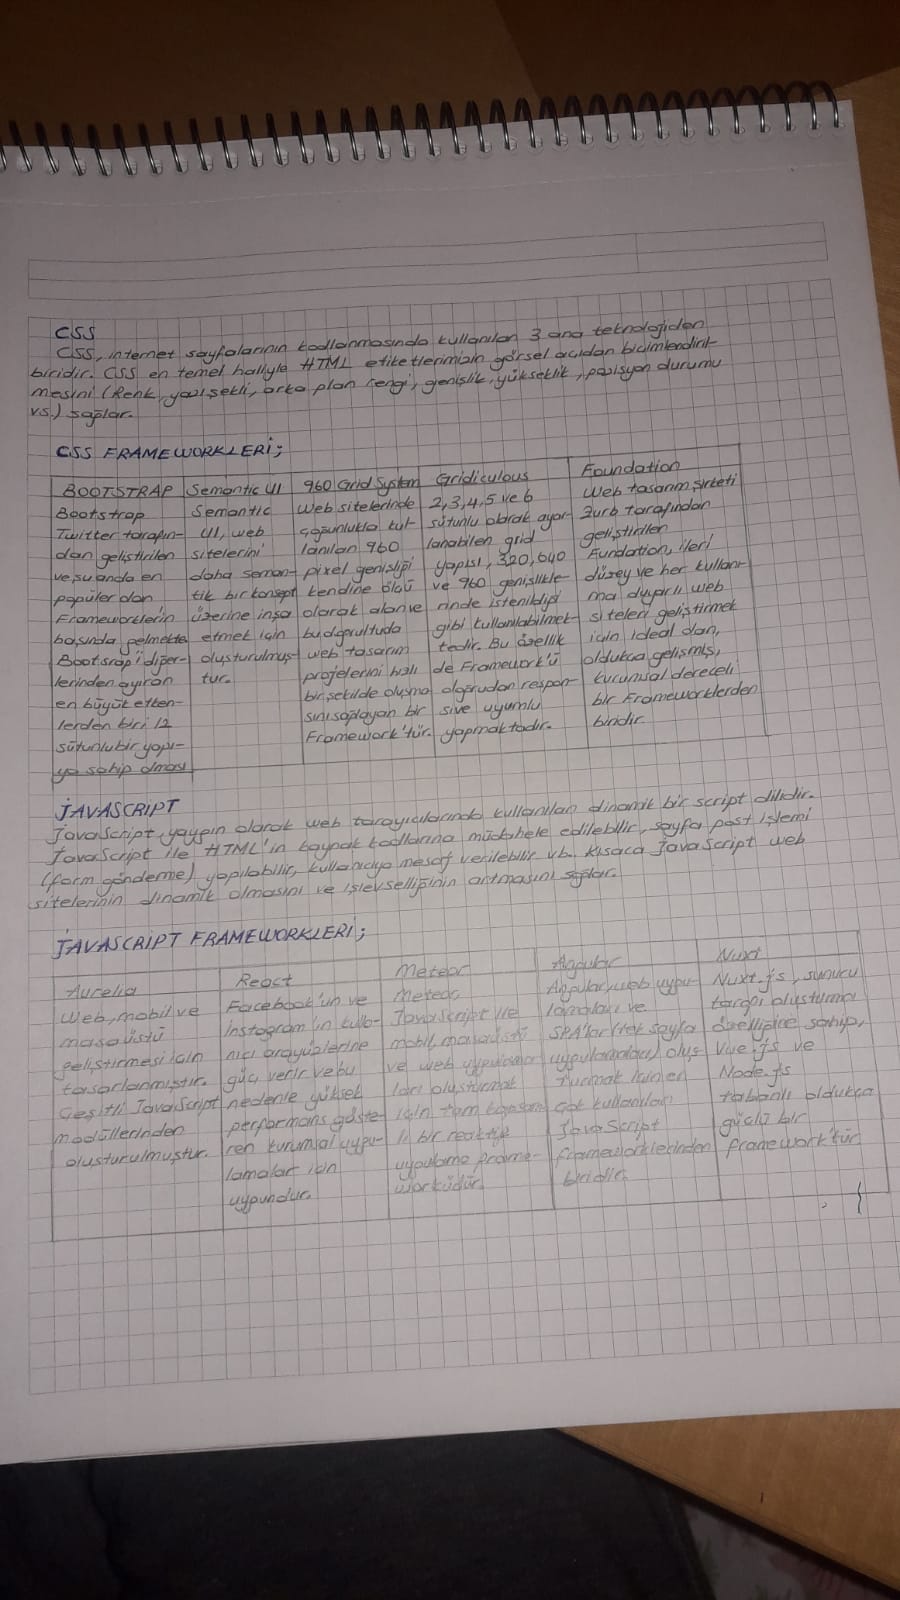 CSS
CSS, internet sayfalarının kodlanmasında kullanılan 3 ana teknolojiden
biridir. CSS en temel haliyle HTML etiketlerimizin görsel açıdan biçimlendiril-
mesini (Renk, yazı şekli, arka plan rengi, genişlik, yükseklik, pozisyon durumu
vs.) sağlar.
CSS FRAMEWORKLERİ;
BOOTSTRAP
Bootstrap
Twitter tarafın-
dan geliştirilen
ve şu anda en
popüler olan
Frameworklerin
başında gelmekte
Bootsrap'i diğer-
lerinden ayıran
en büyük etken-
lerden biri 12
sütunlu bir yapı-
ya sahip olması
Semantic UI
Semantic
UI, web
sitelerini
daha seman-
tik bir konsept
üzerine inşa
etmek için
oluşturulmuş-
tur.
960 Grid System
Web sitelerinde
çoğunlukla kul-
lanılan 960
pixel genişliği
kendine ölçü
olarak alan ve
bu doğrultuda
web tasarım
projelerini hızlı
bir şekilde oluşma
sını sağlayan bir
Framework'tür.
Gridiculous
2,3,4,5 ve 6
sütunlu olarak ayar-
lanabilen grid
yapısı, 320, 640
ve 960 genişlikle-
rinde istenildiği
gibi kullanılabilmek-
tedir. Bu özellik
de Framework'ü
doğrudan respon-
sive uyumlu
yapmaktadır.
Foundation
Web tasarım şirketi
Zurb tarafından
geliştirilen
Fundation, ileri
düzey ve her kullanı-
ma duyarlı web
siteleri geliştirmek
için ideal olan,
oldukca gelişmiş,
kurumsal dereceli
bir Frameworklerden
biridir
JAVASCRIPT
JavaScript, yaygın olarak web tarayıcılarında kullanılan dinamik bir script dilidir.
JavaScript ile HTML'in kaynak kodlarına müdahele edilebilir, sayfa post işlemi
(form gönderme) yapılabilir, kullanıcıya mesaj verilebilir vb. Kısaca JavaScript web
sitelerinin dinamik olmasını ve işlevselliğinin artmasını sağlar.
JAVASCRIPT FRAMEWORKLERİ;
Aurelia
Web, mobil ve
masaüstü
geliştirmesi için
tasarlanmıştır.
Çeşitli JavaScript
modüllerinden
oluşturulmuştur.
React
Facebook'un ve
Instagram'ın kulla-
nıcı arayüzlerine
güç verir ve bu
nedenle yüksek
performans göste-
ren kurumsal uygu-
lamalar için
uygundur.
Meteor
Meteor,
JavaScript ile
mobil, masaüstü
ve web uygulama
ları oluşturmak
için tam kapsam
lı bir reaktif
uygulama frame-
workü​dür.
Angular
Angular, web uygu-
lamaları ve
SPA'lar (tek sayfa
uygulamaları) oluş
turmak için en
çok kullanılan
JavaScript
frameworklerinden
biridir.
Nuxt
Nuxt.js, sunucu
tarafı oluşturma
özelliğine sahip,
Vue.js ve
Node.js
tabanlı oldukça
güçlü bir
framework'tür